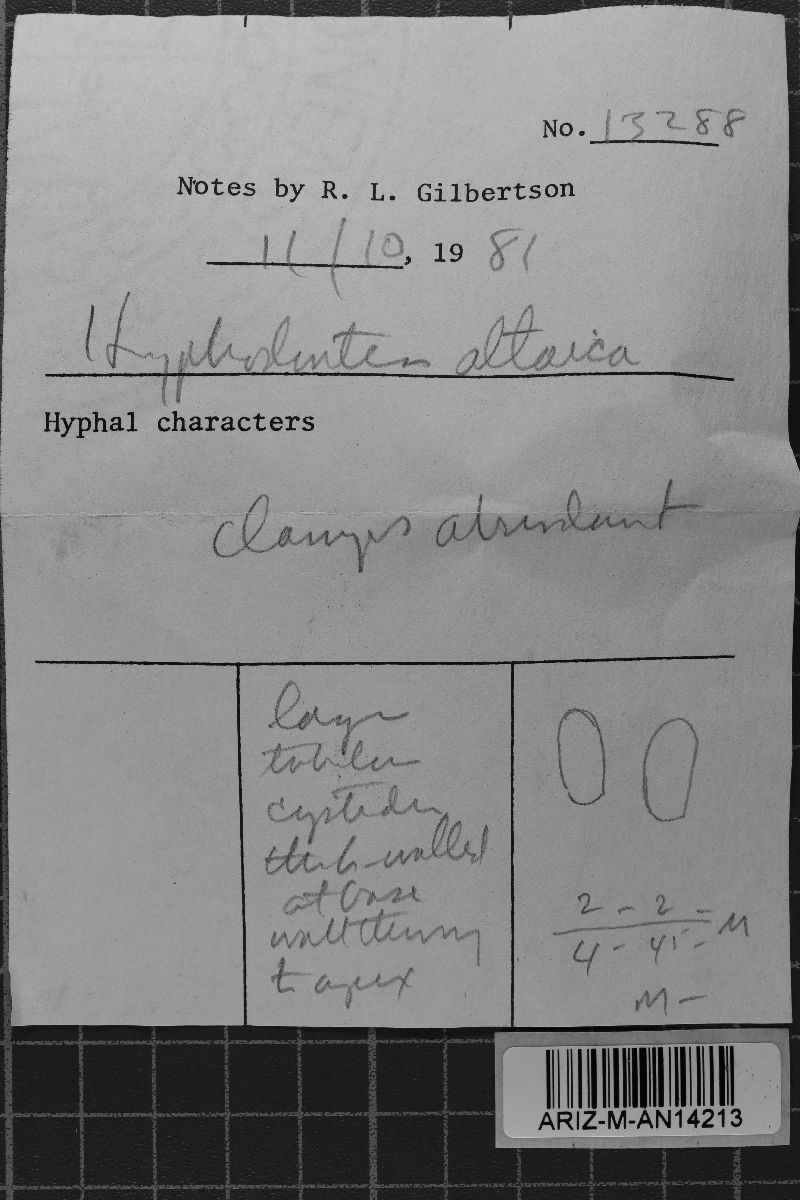 No. 13288
Notes by R. L. Gilbertson
11/10, 1981
Hyphodontia altaica
Hyphal characters
clamps abundant
large
tubular
cystidia
thick-walled
at base
wall thinning
to apex
2 - 2 -
4 - 4.5 - M
M -
ARIZ-M-AN14213